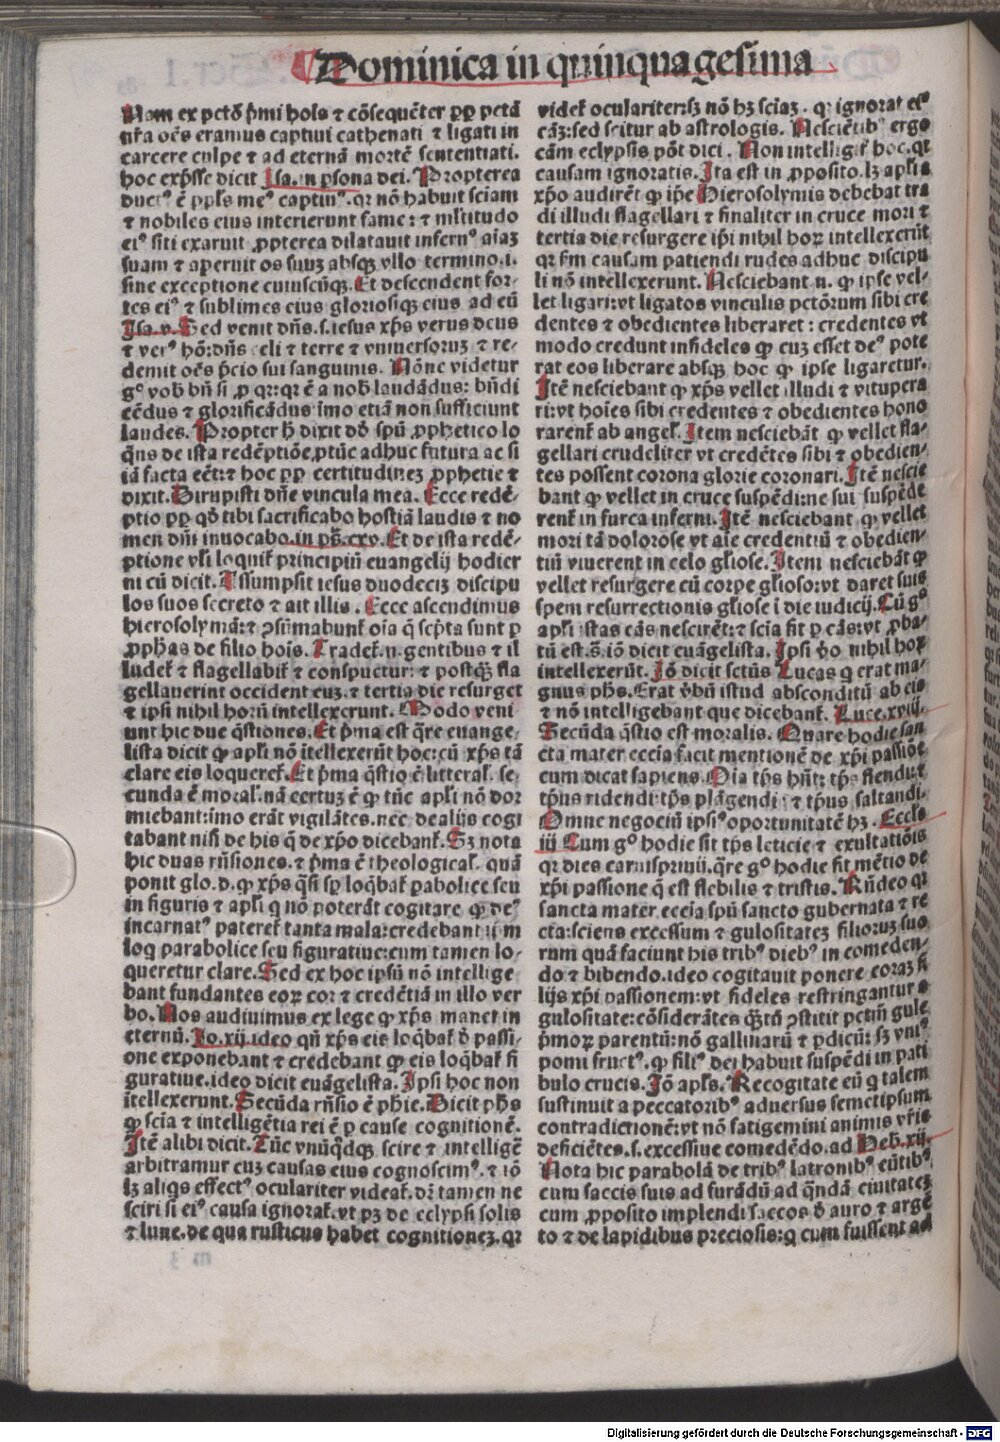 Dominica in quinquagesima
Nam ex pctō p̄mi hoīs ⁊ cōsequēter ꝓp pctā
nr̄a oēs eramus captiui cathenati ⁊ ligati in
carcere culpe ⁊ ad eternā mortē sententiati.
hoc exp̄sse dicit Isa. in ꝑsona dei. Propterea
ductꝰ ē ppl̄s meꝰ captiuꝰ. qr nō habuit sciam
⁊ nobiles eius interierunt fame: ⁊ ml̄titudo
eiꝰ siti exaruit ꝓpterea dilatauit infernꝰ aīaꝫ
suam ⁊ aperuit os suuꝫ absqꝫ vllo termino.i.
sine exceptione cuiuscūqꝫ. Et descendent for-
tes eiꝰ ⁊ sublimes eius gloriosiqꝫ eius ad eū
Isa.v. Sed venit dn̄s.s.iesus xp̄s verus deus
⁊ verꝰ hō: dn̄s celi ⁊ terre ⁊ vniuersoruꝫ ⁊ re-
demit oēs p̄cio sui sanguinis. Nōne videtur
gͦ vob bn̄ si ꝓ qr: qr ē a nob laudādus: bn̄di
cēdus ⁊ glorificādus īmo etiā non sufficiunt
laudes. Propter h̄ dixit dd̄ spū ꝓphetico lo
q̄ns de ista redēptiōe, ptūc adhuc futura ac si
iā facta eēt: ⁊ hoc ꝓp certitudineꝫ ꝓphetie ⁊
dixit. Dirupisti dn̄e vincula mea. Ecce redē-
ptio ꝓp qd̄ tibi sacrificabo hostiā laudis ⁊ no
men dn̄i inuocabo. in ps̄. cxv. Et de ista redē-
ptione vl̓i loquit̄ principiū euangelij hodier
ni cū dicit. Assumpsit iesus duodeciꝫ discipu
los suos secreto ⁊ ait illis. Ecce ascendimus
hierosolymā: ⁊ ꝯsūmabunt̄ oīa q̄ scp̄ta sunt ꝑ
ꝓphas de filio hoīs. Tradet̄.n. gentibus ⁊ il
ludet̄ ⁊ flagellabit̄ ⁊ conspuetur: ⁊ postqꝫ fla
gellauerint occident euꝫ. ⁊ tertia die resurget
⁊ ipsi nihil horū intellexerunt. Modo veni
unt hic due q̄stiones. Et p̄ma est q̄re euange-
lista dicit ꝙ apl̓i nō ītellexerūt hoc: cū xp̄s tā
clare eis loqueret̄. Et p̄ma q̄stio ē litteral̓. se-
cunda ē moral̓. nā certuꝫ ē ꝙ tūc apl̓i nō dor
miebant: īmo erāt vigilātes. nec de alijs cogi
tabant nisi de his q̄ de xp̄o dicebant̄. Sꝫ nota
hic duas rn̄siones. ⁊ p̄ma ē theological̓. quā
ponit glo.d. ꝙ xp̄s q̄si sp̄ loq̄bat̄ ꝑabolice seu
in figuris ⁊ apl̓i q nō poterāt cogitare ꝙ deꝰ
incarnatꝰ pateret̄ tanta mala: credebant
loq parabolice seu figuratiue: cum tamen lo-
queretur clare. Sed ex hoc ipsū nō intellige
bant fundantes eoꝝ cor ⁊ credētiā in illo ver
bo. Nos audiuimus ex lege ꝙ xp̄s manet in
eternū. Io.xij. ideo qn̄ xp̄s eis loq̄bat̄ d̄ passi-
one exponebant ⁊ credebant ꝙ eis loq̄bat̄ fi
guratiue. ideo dicit euāgelista. Ipsi hoc non
ītellexerunt. Secūda rn̄sio ē phīe. Dicit ph̄s
ꝙ scīa ⁊ intelligētia rei ē ꝑ cause cognitionē.
Itē alibi dicit. Tūc vnūq̄dqꝫ scire ⁊ intelligē
arbitramur cuꝫ causas eius cognoscimꝰ. ⁊ iō
lꝫ aliqs effectꝰ oculariter videat̄. dr̄ tamen ne
sciri si eiꝰ causa ignorat̄. vt pꝫ de eclypsi solis
⁊ lune. de qua rusticus habet cognitioneꝫ. qr
videt̄ oculariter: sꝫ nō hꝫ sciaꝫ. qr ignorat eiꝰ
cāꝫ: sed scitur ab astrologis. Nesciētibꝰ ergo
cām eclypsis pōt dici. Non intelligit̄ hoc. qr
causam ignoratis. Ita est in ꝓposito. lꝫ apl̓i a
xp̄o audirēt ꝙ ip̄e Hierosolymis debebat tra
di illudi flagellari ⁊ finaliter in cruce mori ⁊
tertia die resurgere ip̄i nihil hoꝝ intellexerūt
qr fm̄ causam patiendi rudes adhuc discipu
li nō intellexerunt. Nesciebant.n. ꝙ ipse vel-
let ligari: vt ligatos vinculis pctōrum sibi cre
dentes ⁊ obedientes liberaret: credentes vt
modo credunt infideles ꝙ cuꝫ esset deꝰ pote
rat eos liberare absqꝫ hoc ꝙ ipse ligaretur.
Itē nesciebant ꝙ xp̄s vellet illudi ⁊ vitupera
ri: vt hoīes sibi credentes ⁊ obedientes hono
rarent̄ ab angel̓. Item nesciebāt ꝙ vellet fla-
gellari crudeliter vt credētes sibi ⁊ obedien-
tes possent corona glorie coronari. Itē nescie
bant ꝙ vellet in cruce suspēdi: ne sui suspēde
rent̄ in furca inferni. Itē nesciebant ꝙ vellet
mori tā dolorose vt aīe credentiū ⁊ obedien-
tiū viuerent in celo gl̓iose. Item nesciebāt ꝙ
vellet resurgere cū corpe gl̓ioso: vt daret suis
spem resurrectionis gl̓iose ī die iudicij. Cū gͦ
apl̓i istas cās nescirēt: ⁊ scia fit ꝑ cās: vt ꝓba-
tū est. S̄. iō dicit euāgelista. Ipsi v̄o nihil hoꝝ
intellexerūt. Iō dicit sctūs Lucas q erat ma-
gnus ph̄s. Erat v̄bū istud absconditū ab eis
⁊ nō intelligebant que dicebant̄. Luce. xviij.
Secūda q̄stio est moralis. Quare hodie san
cta mater eccīa facit mentionē de xp̄i passiōe
cum dicat sapiens. Oīa tp̄s hn̄t: tp̄s flendi: ⁊
tp̄us ridendi: tp̄s plāgendi: ⁊ tp̄us saltandi.
Omne negociū ipsiꝰ oportunitatē hꝫ. Eccl̓s
iij Cum gͦ hodie sit tp̄s leticie ⁊ exultatiōis
qr dies carnispriuij. q̄re gͦ hodie fit mētio de
xp̄i passione q̄ est flebilis ⁊ tristis. Rn̄deo qr
sancta mater eccīa spū sancto gubernata ⁊ re
cta: sciens excessum ⁊ gulositateꝫ filioruꝫ suo
rum quā faciunt his tribꝰ diebꝰ in comeden-
do ⁊ bibendo. ideo cogitauit ponere coraꝫ fi
lijs xp̄i passionem: vt fideles restringantur a
gulositate: cōsiderātes qꝫtū ꝯstitit pctm̄ gule
p̄moꝝ parentū: nō gallinarū ⁊ ꝑdicū: sꝫ vniꝰ
pomi fructꝰ. ꝙ filiꝰ dei habuit suspēdi in pati
bulo crucis. Iō apl̓s. Recogitate eū q talem
sustinuit a peccatoribꝰ aduersus semetipsum
contradictionē: vt nō fatigemini animis vr̄is
deficiētes.s. excessiue comedēdo. ad Heb.xij.
Nota hic parabolā de tribꝰ latronibꝰ eūtibꝰ
cum saccis suis ad furādū ad q̄ndā ciuitateꝫ
cum ꝓposito implendi saccos d̄ auro ⁊ argē
to ⁊ de lapidibus preciosis: q cum fuissent ad
Digitalisierung gefördert durch die Deutsche Forschungsgemeinschaft - DFG